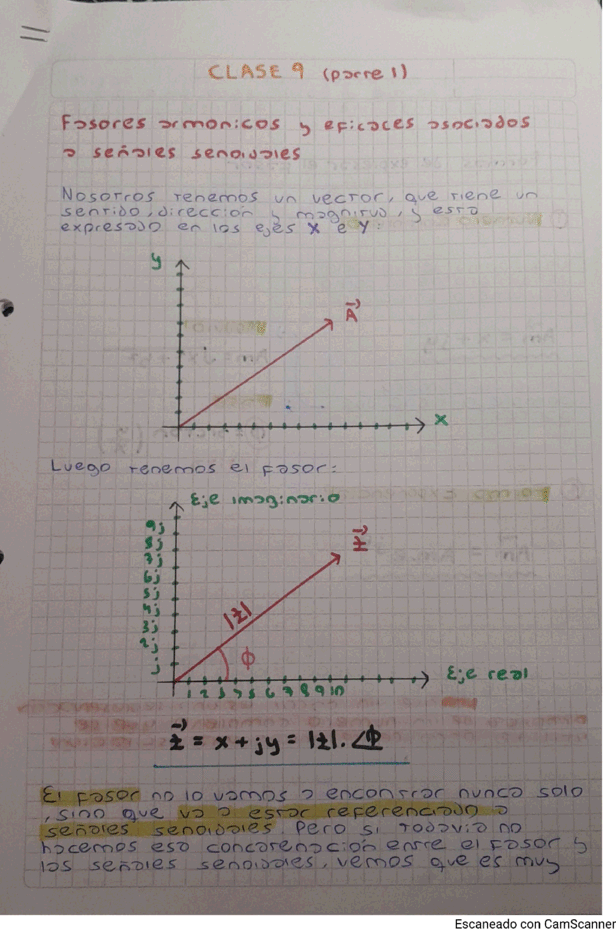 CLASE 9 (parte 1)
Fasores armonicos y eficaces asociados
a señales senoidales
Nosotros tenemos un vector, que tiene un
sentido, dirección y magnitud, y esta
expresado en los ejes X e Y:
y
A
x
Luego tenemos el fasor:
Eje imaginario
9j
8j
7j
6j
5j
4j
3j
2j
j
Z
|Z|
φ
1 2 3 4 5 6 7 8 9 10
Eje real
Z = x + jy = |Z|. ∠φ
El fasor no lo vamos a encontrar nunca solo
, sino que va a estar referenciado a
señales senoidales. Pero si todavia no
hacemos esa concatenación entre el fasor y
las señales senoidales, vemos que es muy
Escaneado con CamScanner